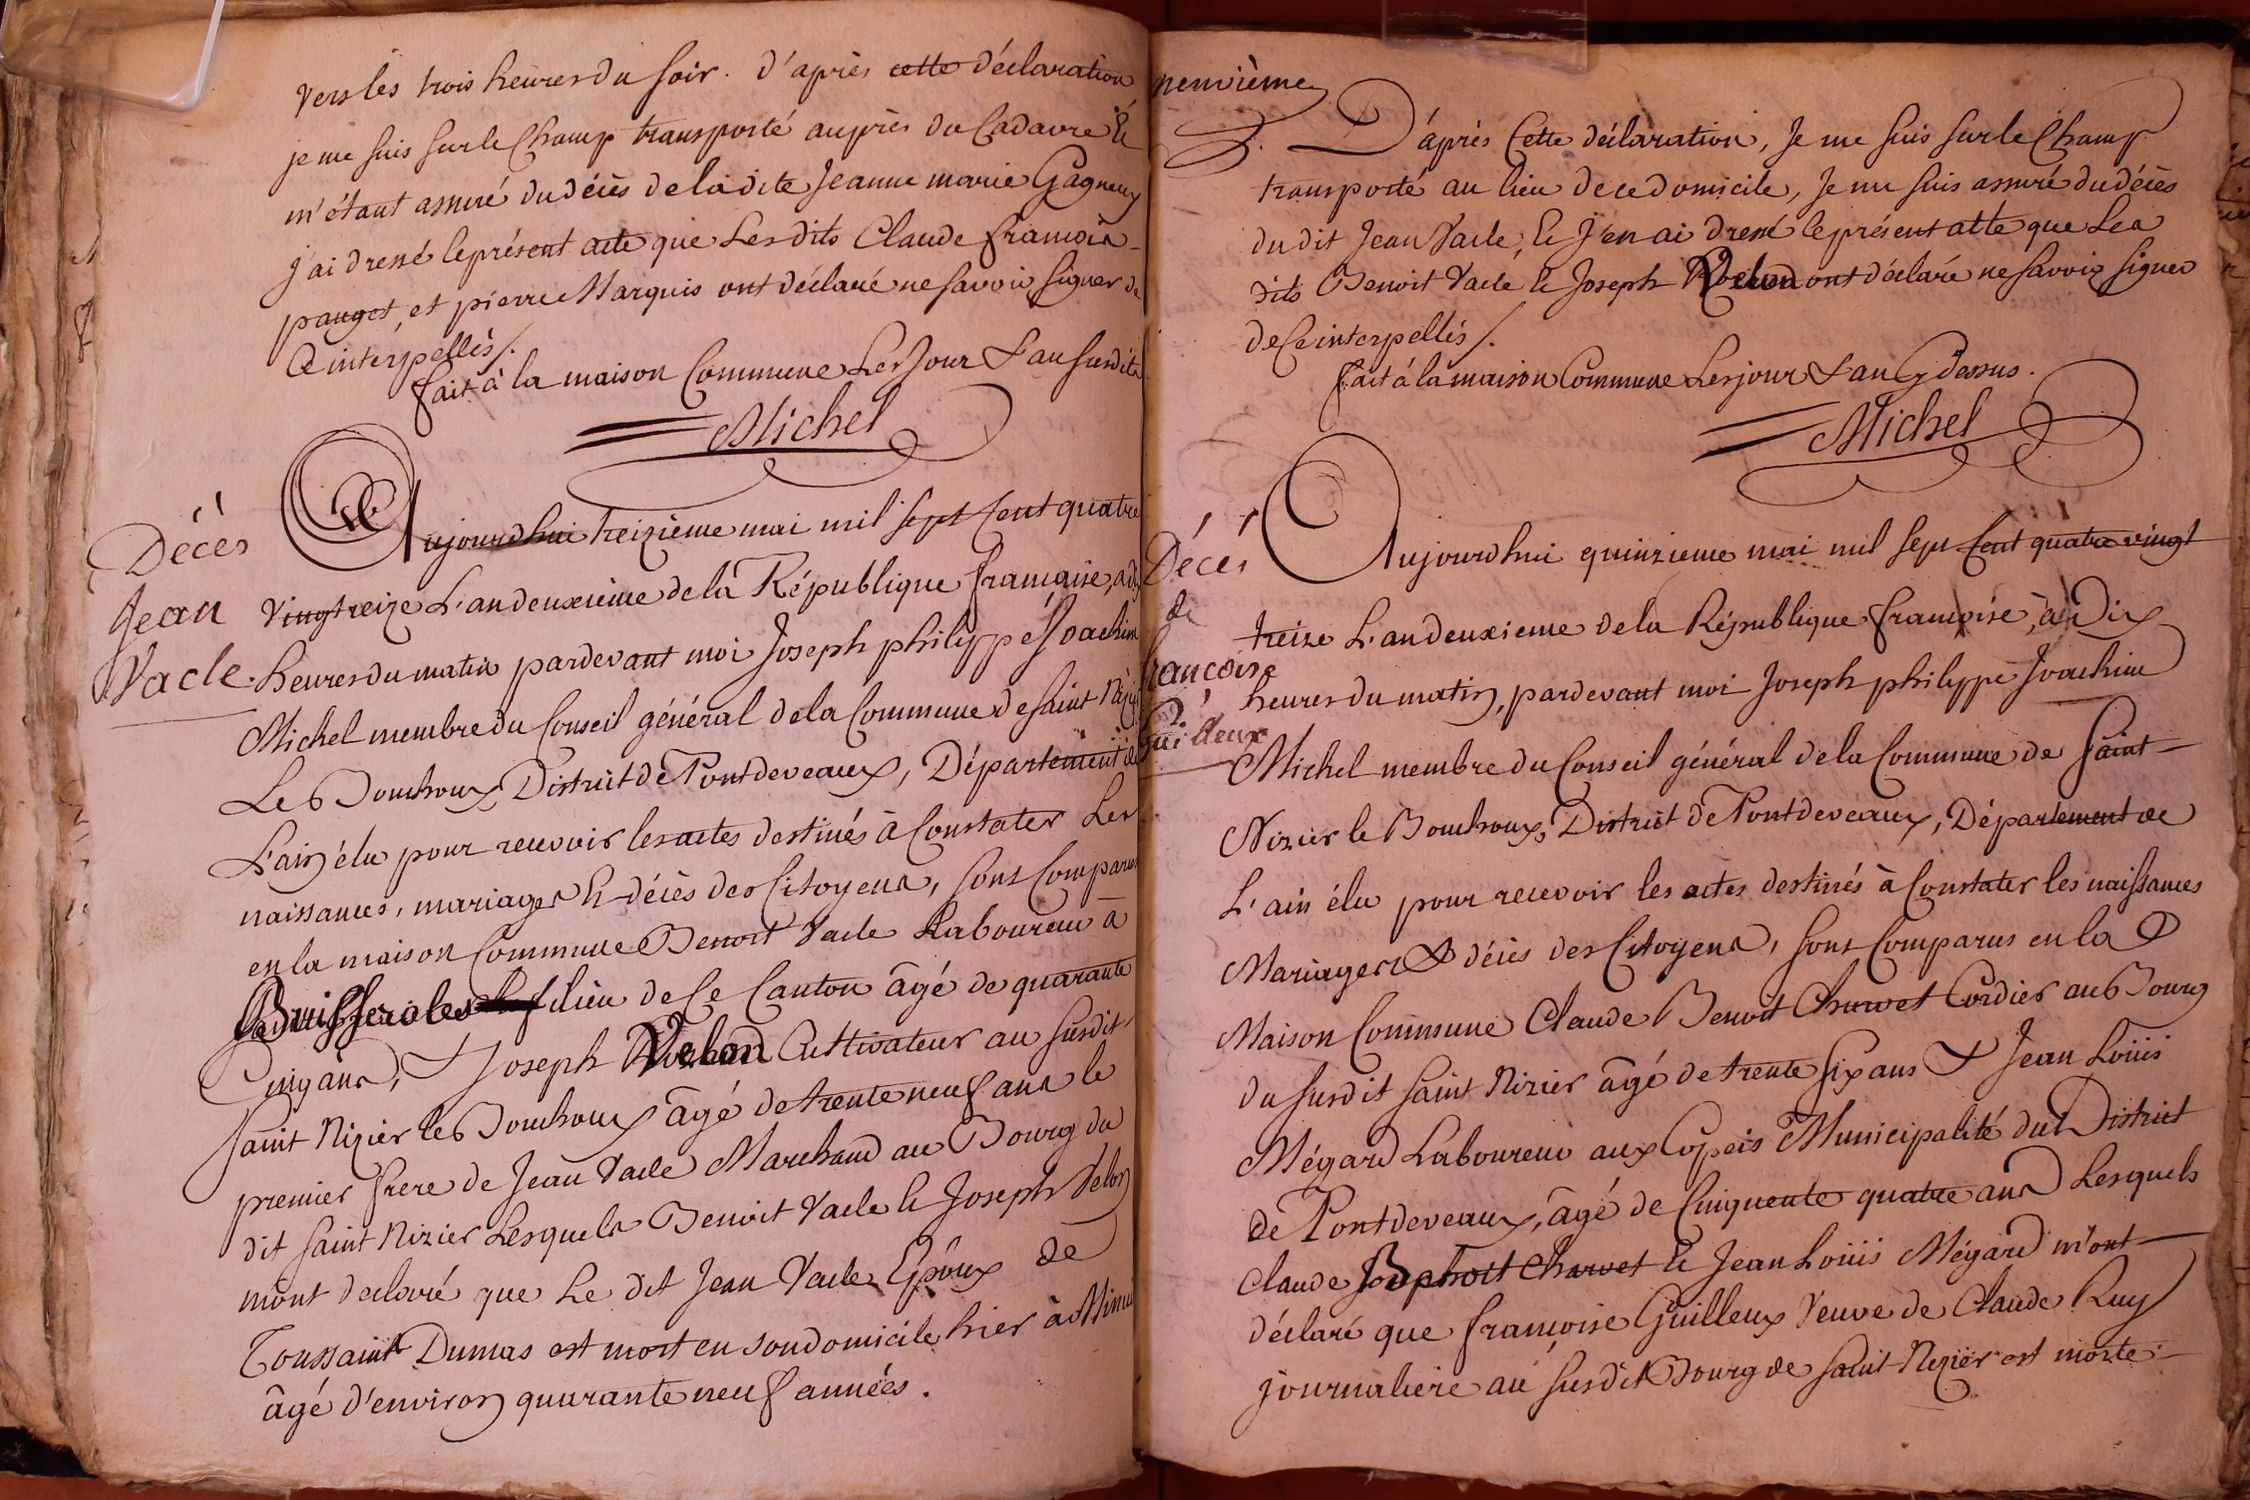 vers les trois heures du soir. d'après cette déclaration
je me suis sur le Champ transporté auprès du Cadavre Et
m'étant assuré du décès de la dite Jeanne marie Gagneux
j'ai dressé le présent acte que Les dits Claude françois
pauget, et pierre Marquis ont déclaré ne savoir signer de
Ce interpellés/.
fait à la maison Commune Les Jour & an susdits
Michel
Décès
Jean
Vacle.
Aujourdhui treizième mai mil sept Cent quatre
Vingt treize L'an deuxième de la République françaíse, a dix
heures du matin pardevant moi Joseph philippe Joachim
Michel membre du Conseil général de la Commune de Saint Nizier
Le Bouchoux, District de Pontdeveaux, Département de
L'ain élu pour recevoir les actes destinés à Constater Les
naissances, mariages Et décès des Citoyens, sont Comparus
en la maison Commune Benoit Vacle Laboureur à
Buisserolles lieu de Ce Canton âgé de quarante
Cinq ans, & Joseph Velon Cultivateur au susdit
saint Nizier le Bouchoux âgé de trente neuf ans le
premier frere de Jean Vacle Marchand au Bourg du
dit saint Nizier Lesquels Benoit Vacle & Joseph Velon
m'ont declaré que Le dit Jean Vacle Epoux de
Toussaint Dumas est mort en son domicile hier à Minuit
âgé d'environ quarante neuf années.
neuvième
D'après Cette déclaration, Je me suis sur le Champ
transporté au lieu de ce domicile, Je me suis assuré du décès
du dit Jean Vacle, Et J'en ai dressé le présent acte que Les
dits Benoit Vacle & Joseph Velon ont déclaré ne savoir signer
de Ce interpellés/.
fait à la maison Commune Les jour & an Cy dessus.
Michel
Décès
de
françoise
Guilleux
Aujourdhui quinzieme mai mil sept Cent quatre vingt
treize L'an deuxieme de la République françoise, à Dix
heures du matin, pardevant moi Joseph philippe Joachim
Michel membre du Conseil général de la Commune de Saint
Nizier le Bouchoux, District de Pontdeveaux, Département de
L'ain élu pour recevoir les actes destinés à Constater les naissances
Mariages & décès des Citoyens, sont Comparus en la
Maison Commune Claude Benoit Charvet Cordier au Bourg
du susdit saint Nizier âgé de trente six ans & Jean Loüis
Mégard Laboureur aux Copeis Municipalité du District
de Pontdeveaux, âgé de Cinquente quatre ans Lesquels
Claude Benoit Charvet & Jean Loüis Mégard m'ont
déclaré que françoise Guilleux Veuve de Claude Ruy
journaliere au susdit Bourg de saint Nizier est morte